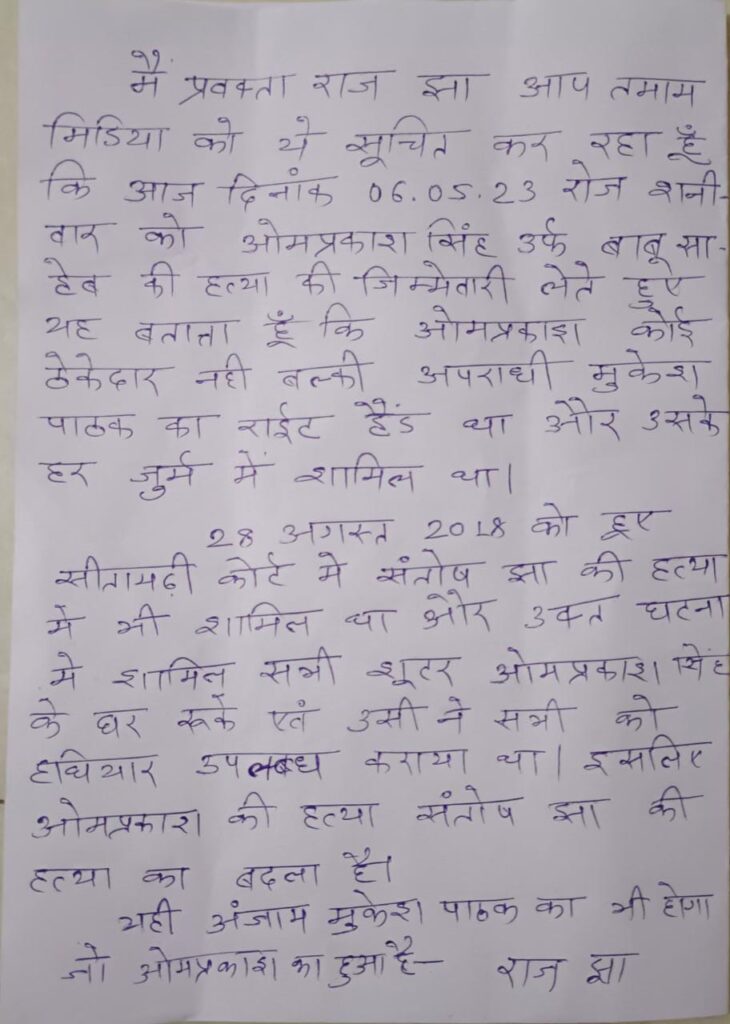 मैं प्रवक्ता राज झा आप तमाम
मिडिया को ये सूचित कर रहा हूँ
कि आज दिनांक 06.05.23 रोज शनी-
वार को ओमप्रकाश सिंह उर्फ बाबू सा-
हेब की हत्या की जिम्मेवारी लेते हुए
यह बताता हूँ कि ओमप्रकाश कोई
ठेकेदार नही बल्की अपराधी मुकेश
पाठक का राईट हैंड था और उसके
हर जुर्म में शामिल था।
28 अगस्त 2018 को हुए
सीतामढ़ी कोर्ट मे संतोष झा की हत्या
मे भी शामिल था और उक्त घटना
मे शामिल सभी शूटर ओमप्रकाश सिंह
के घर रूके एवं उसी ने सभी को
हथियार उपलब्ध कराया था। इसलिए
ओमप्रकाश की हत्या संतोष झा की
हत्या का बदला है।
यही अंजाम मुकेश पाठक का भी होगा
जो ओमप्रकाश का हुआ है– राज झा